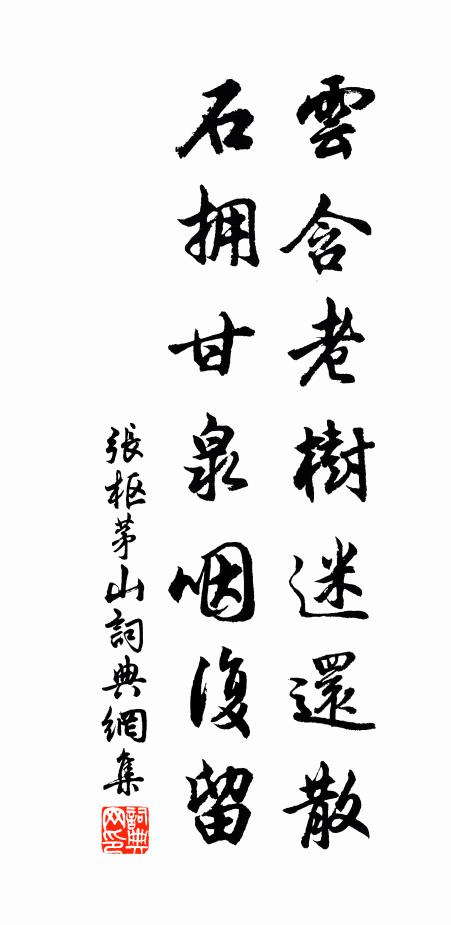 雲含老樹迷還散
石拥甘泉咽復留
張枢茅山詞典網集
詞典网印